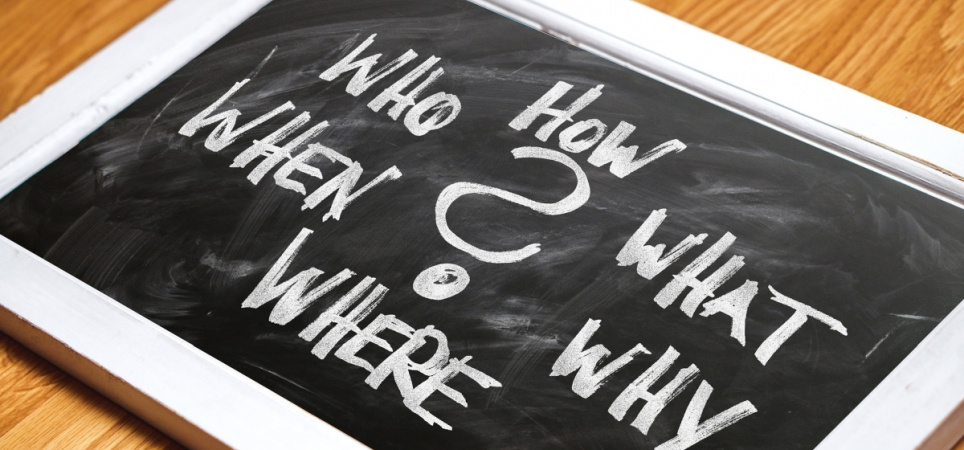 WHO
HOW
WHEN
?
WHAT
WHERE
WHY